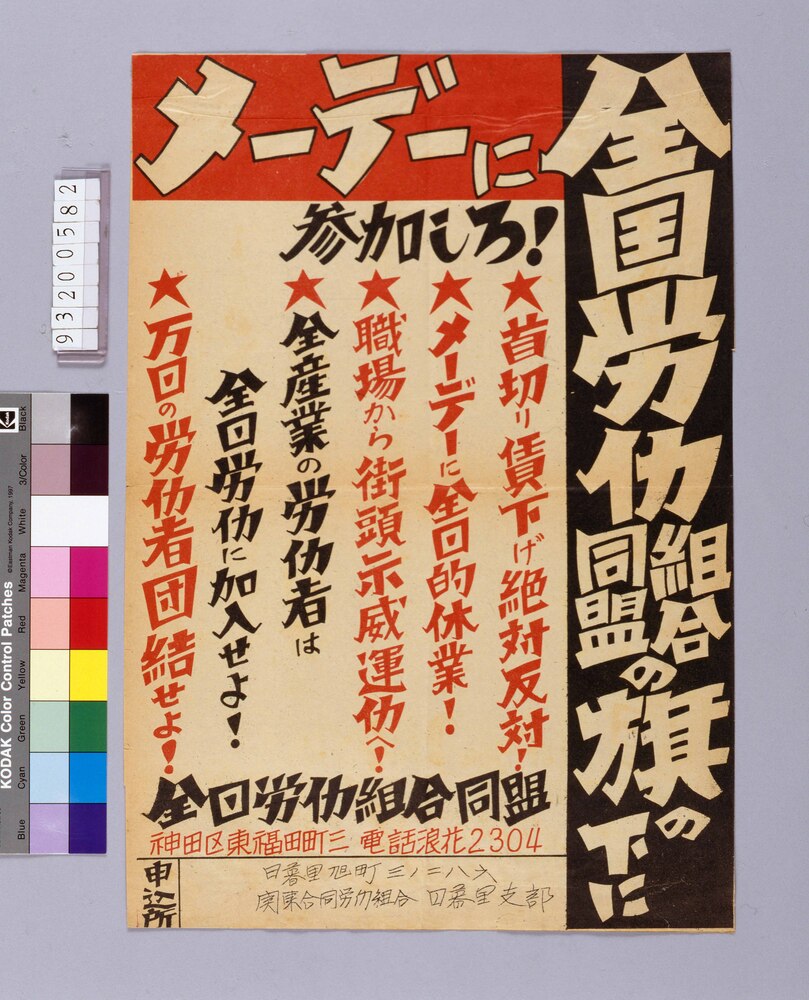 全国労仂組合同盟の旗の下に
メーデーに
参加しろ!
★首切り賃下げ絶対反対!
★メーデーに全囗的休業!
★職場から街頭示威運仂へ!
★全産業の労仂者は
全囗労仂に加入せよ!
★万囗の労仂者団結せよ!
全囗労仂組合同盟
神田区東福田町三 電話浪花2304
申込所
日暮里旭町三ノ二八六
関東合同労仂組合 日暮里支部
93200582
KODAK Color Control Patches
©Eastman Kodak Company, 1997
Kodak
Blue
Cyan
Green
Yellow
Red
Magenta
White
3/Color
Black